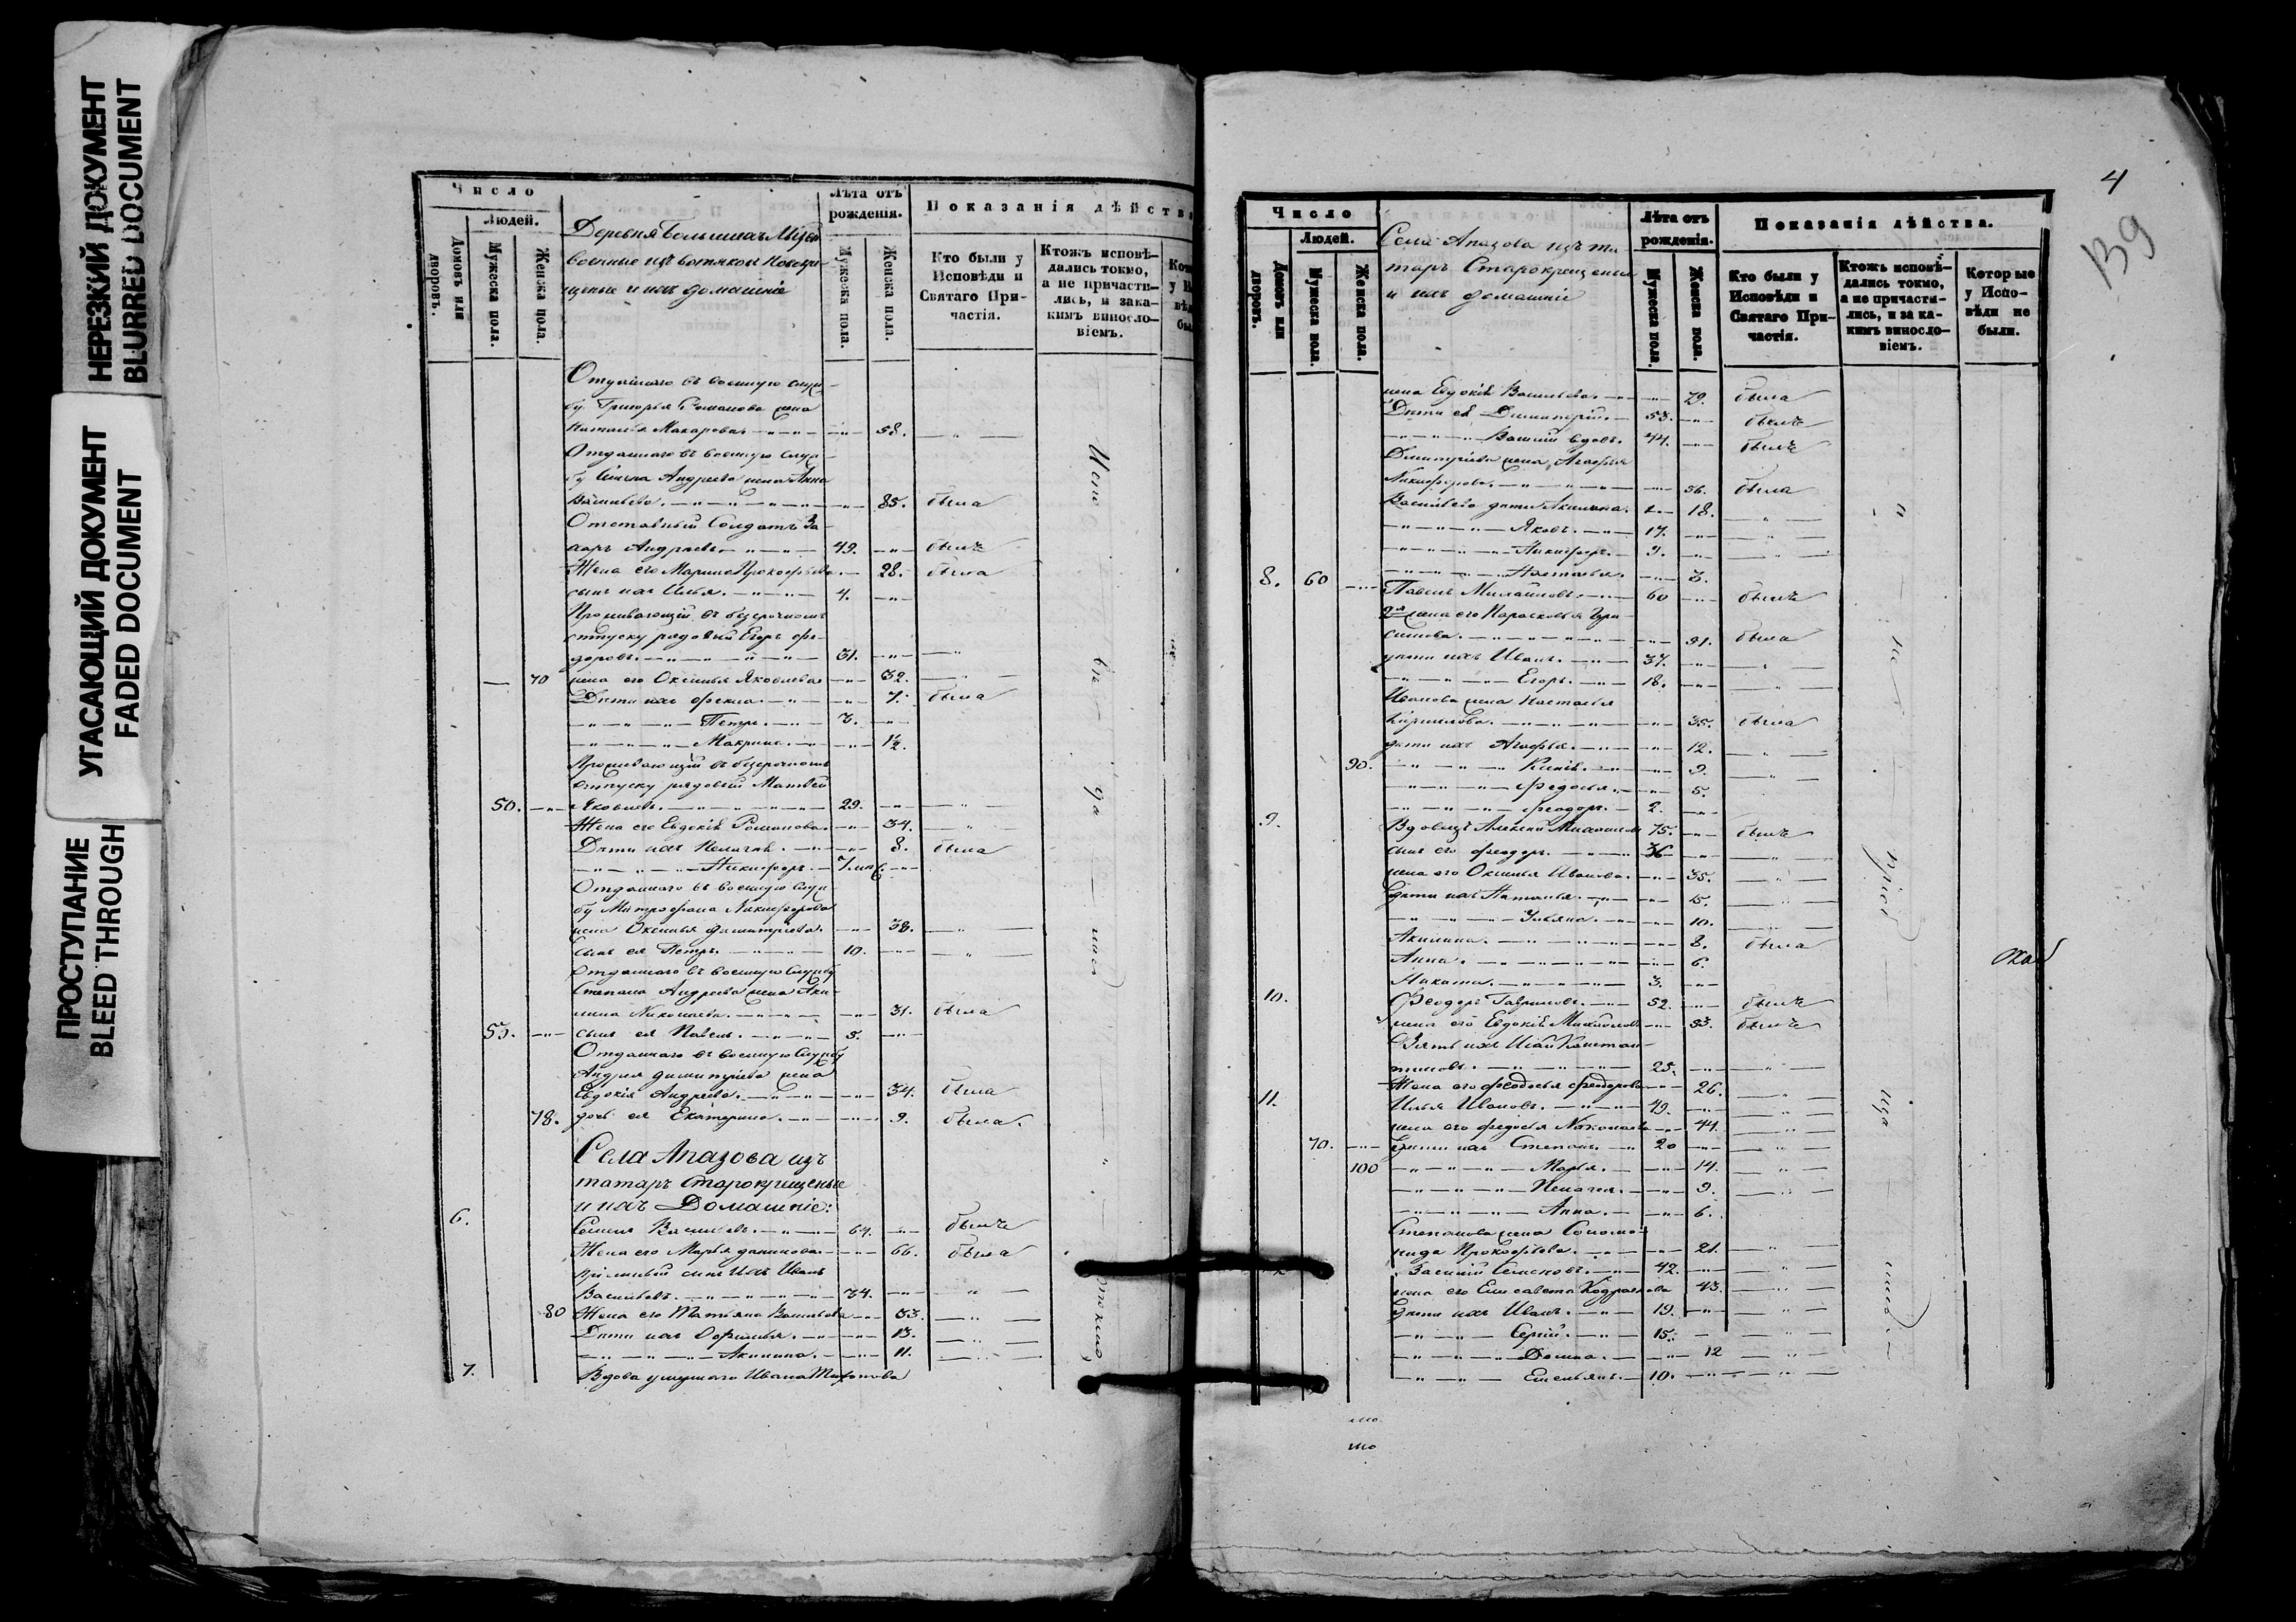 НЕРЕЗКИЙ ДОКУМЕНТ
BLURRED DOCUMENT
УГАСАЮЩИЙ ДОКУМЕНТ
FADED DOCUMENT
ПРОСТУПАНИЕ
BLEED THROUGH
Число
Людей.
Домовъ или дворовъ.
Мужеска пола.
Женска пола.
Деревня Большихъ
военные изъ вотяковъ Новокре-
щеные и ихъ домашніе
Лѣта отъ рожденія.
Мужеска пола.
Женска пола.
Показанія дѣйства
Кто были у Исповѣди и Святаго При-частія.
Ктожъ исповѣ-дались токмо, а не причасти-лись, и зака-кимъ винословіемъ.
Отданнаго въ военную служ-
бу Григорья Романова жена
Наталья Макарова 58.
Отданнаго въ военную служ-
бу Андреева жена Анна
Васильева. 85. была
Отставный Солдатъ За-
харъ Андреевъ 49. былъ
Жена его Марина Прокофьева. 28. была
сынъ ихъ Илья. 4.
Проживающій въ безсрочномъ
отпуску рядовый Егоръ Фе-
доровъ. 31.
70 жена его Оксинья Яковлева 32.
Дѣти ихъ Фекла. 7. была
Петръ. 3.
Макрина. 1½.
Проживающій въ безсрочномъ
отпуску рядовый Матвей
50. Яковлевъ. 29.
Жена его Евдокія Романова. 34.
Дѣти ихъ Пелагея. 8. была
Никифоръ. 7 мѣс.
Отданнаго въ военную служ
бу Митрофана Никифорова
жена Оксинья Димитріева. 38.
Сынъ ея Петръ. 10.
Отданнаго въ военную службу
Степана Андреева жена Аку-
лина Николаева. 31. была
53. сынъ ея Павелъ. 5.
Отданнаго въ военную службу
Андрея Димитріева жена
Евдокія Андреева. 34. была
78. дочь ея Екатерина. 9. была.
Села Апазова изъ
татаръ Старокрещеные
и ихъ Домашніе:
6. Семенъ Васильевъ. 64. былъ
Жена его Марья Данилова. 66. была
Пріемный сынъ ихъ Иванъ
Васильевъ. 34.
80 Жена его Татьяна Васильева 33.
Дѣти ихъ Офимья. 13.
Акилина. 11.
7. Вдова умершаго Ивана
4
В9
Число
Людей.
Домовъ или дворовъ.
Мужеска пола.
Женска пола.
Села Апазова изъ та
таръ Старокрещеные
и ихъ домашніе
Лѣта отъ рожденія.
Мужеска пола.
Женска пола.
Показанія дѣйства.
Кто были у Исповѣди и Святаго При-частія.
Ктожъ исповѣ-дались токмо, а не причасти-лись, и за ка-кимъ винословіемъ.
Которые у Испо-вѣди не были.
жена Евдокія Васильева. 79. была
Дѣти ея Димитрій. 53. былъ
Василій вдовъ. 44. былъ
Дмитріева жена Агафья
Никифорова. 56. была
Васильево дѣти Акилина. 18.
Яковъ. 17.
Никифоръ. 9.
Наталья. 3.
8. 60 Павелъ Михайловъ. 60 былъ
2я жена его Парасковья Гера-
симова. 31. была
дѣти ихъ Иванъ. 37.
Егоръ. 18.
Иванова жена Наталья
Кирилова. 35. была
дѣти ихъ Агафья. 12.
90. 9.
Федосья. 5.
Феодоръ. 2.
9. Вдовецъ Алексей 75. былъ
сынъ его Феодоръ. 36
жена его Оксинья Иванова. 35.
дѣти ихъ Наталья. 15.
Ульяна. 10.
Акилина. 8. была
Анна. 6.
Никита. 3.
10. Феодоръ Гавриловъ. 52. былъ
жена его Евдокія Михайлова 53.
Зять ихъ Исай Констан-
тиновъ. 25.
Жена его Феодосья Феодорова 26.
11. Илья Ивановъ. 49.
жена его Федосья Николаева 44.
70. Дѣти ихъ Степанъ. 20
100 Марья. 14.
Пелагея. 9.
Анна. 6.
Степанова жена Соломо-
нида Прокофьева. 21.
Василій Семеновъ. 42.
жена его Елисавета 43.
Дѣти ихъ Иванъ. 19.
Сергій. 15.
Домна. 12
Емельянъ. 10.